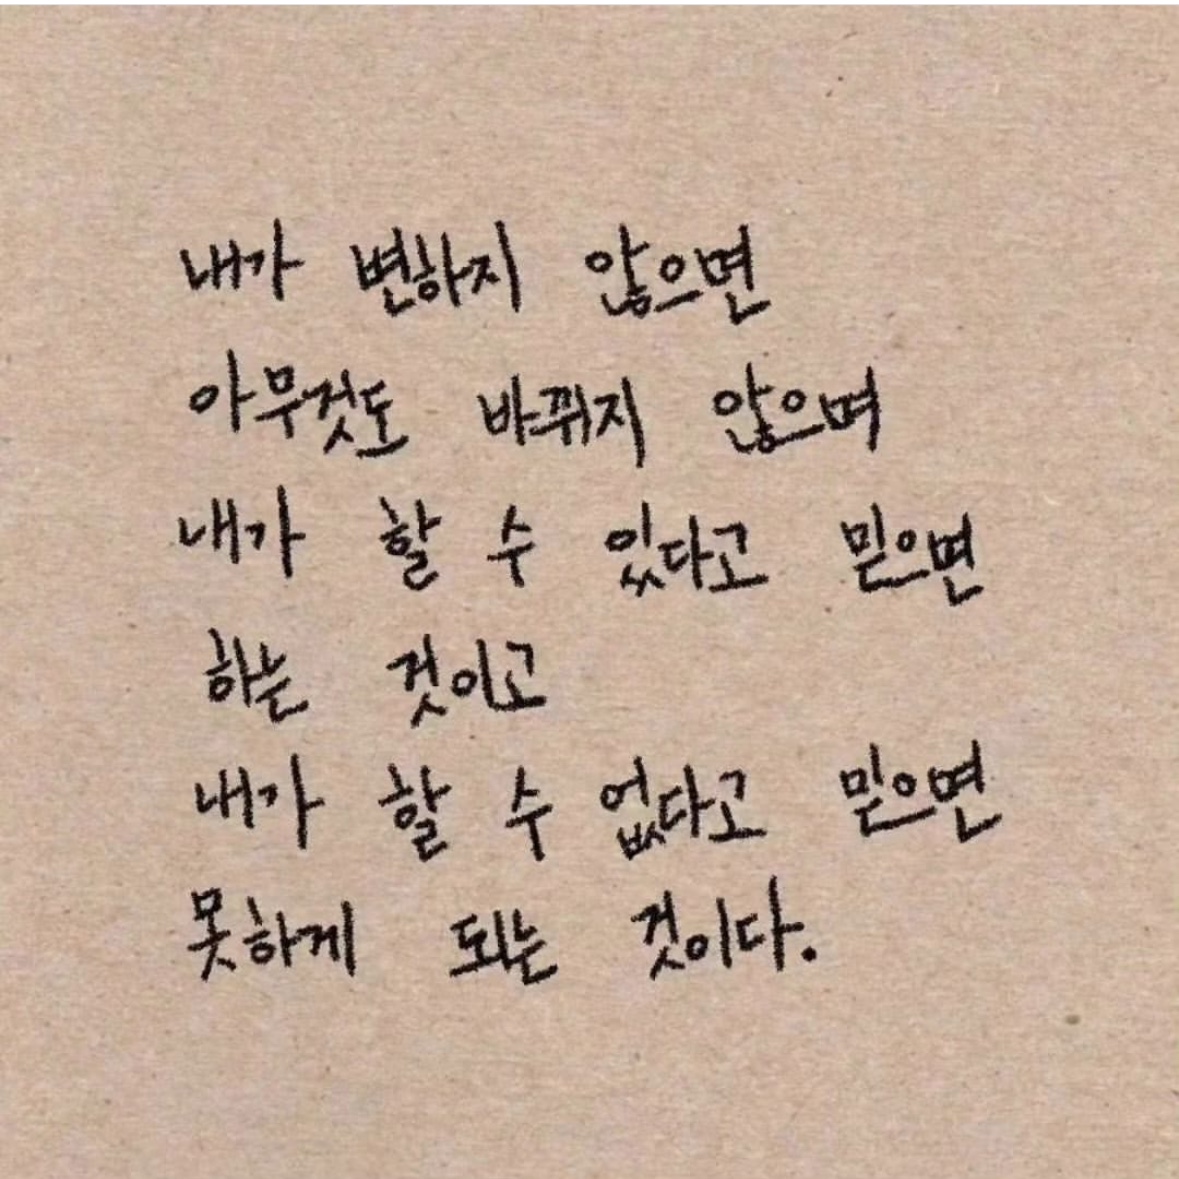 내가 변하지 않으면
아무것도 바뀌지 않으며
내가 할 수 있다고 믿으면
하는 것이고
내가 할 수 없다고 믿으면
못하게 되는 것이다.